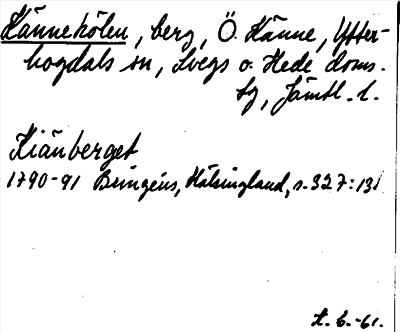 Kännekölen, berg, Ö. Känne, Ytter-
hogdals sn, Svegs o. Hede doms.
tg, Jämtl. l.
Kiänberget
1790-91 Bringéus, Hälsingland, s. 327:13
t. b. -61.